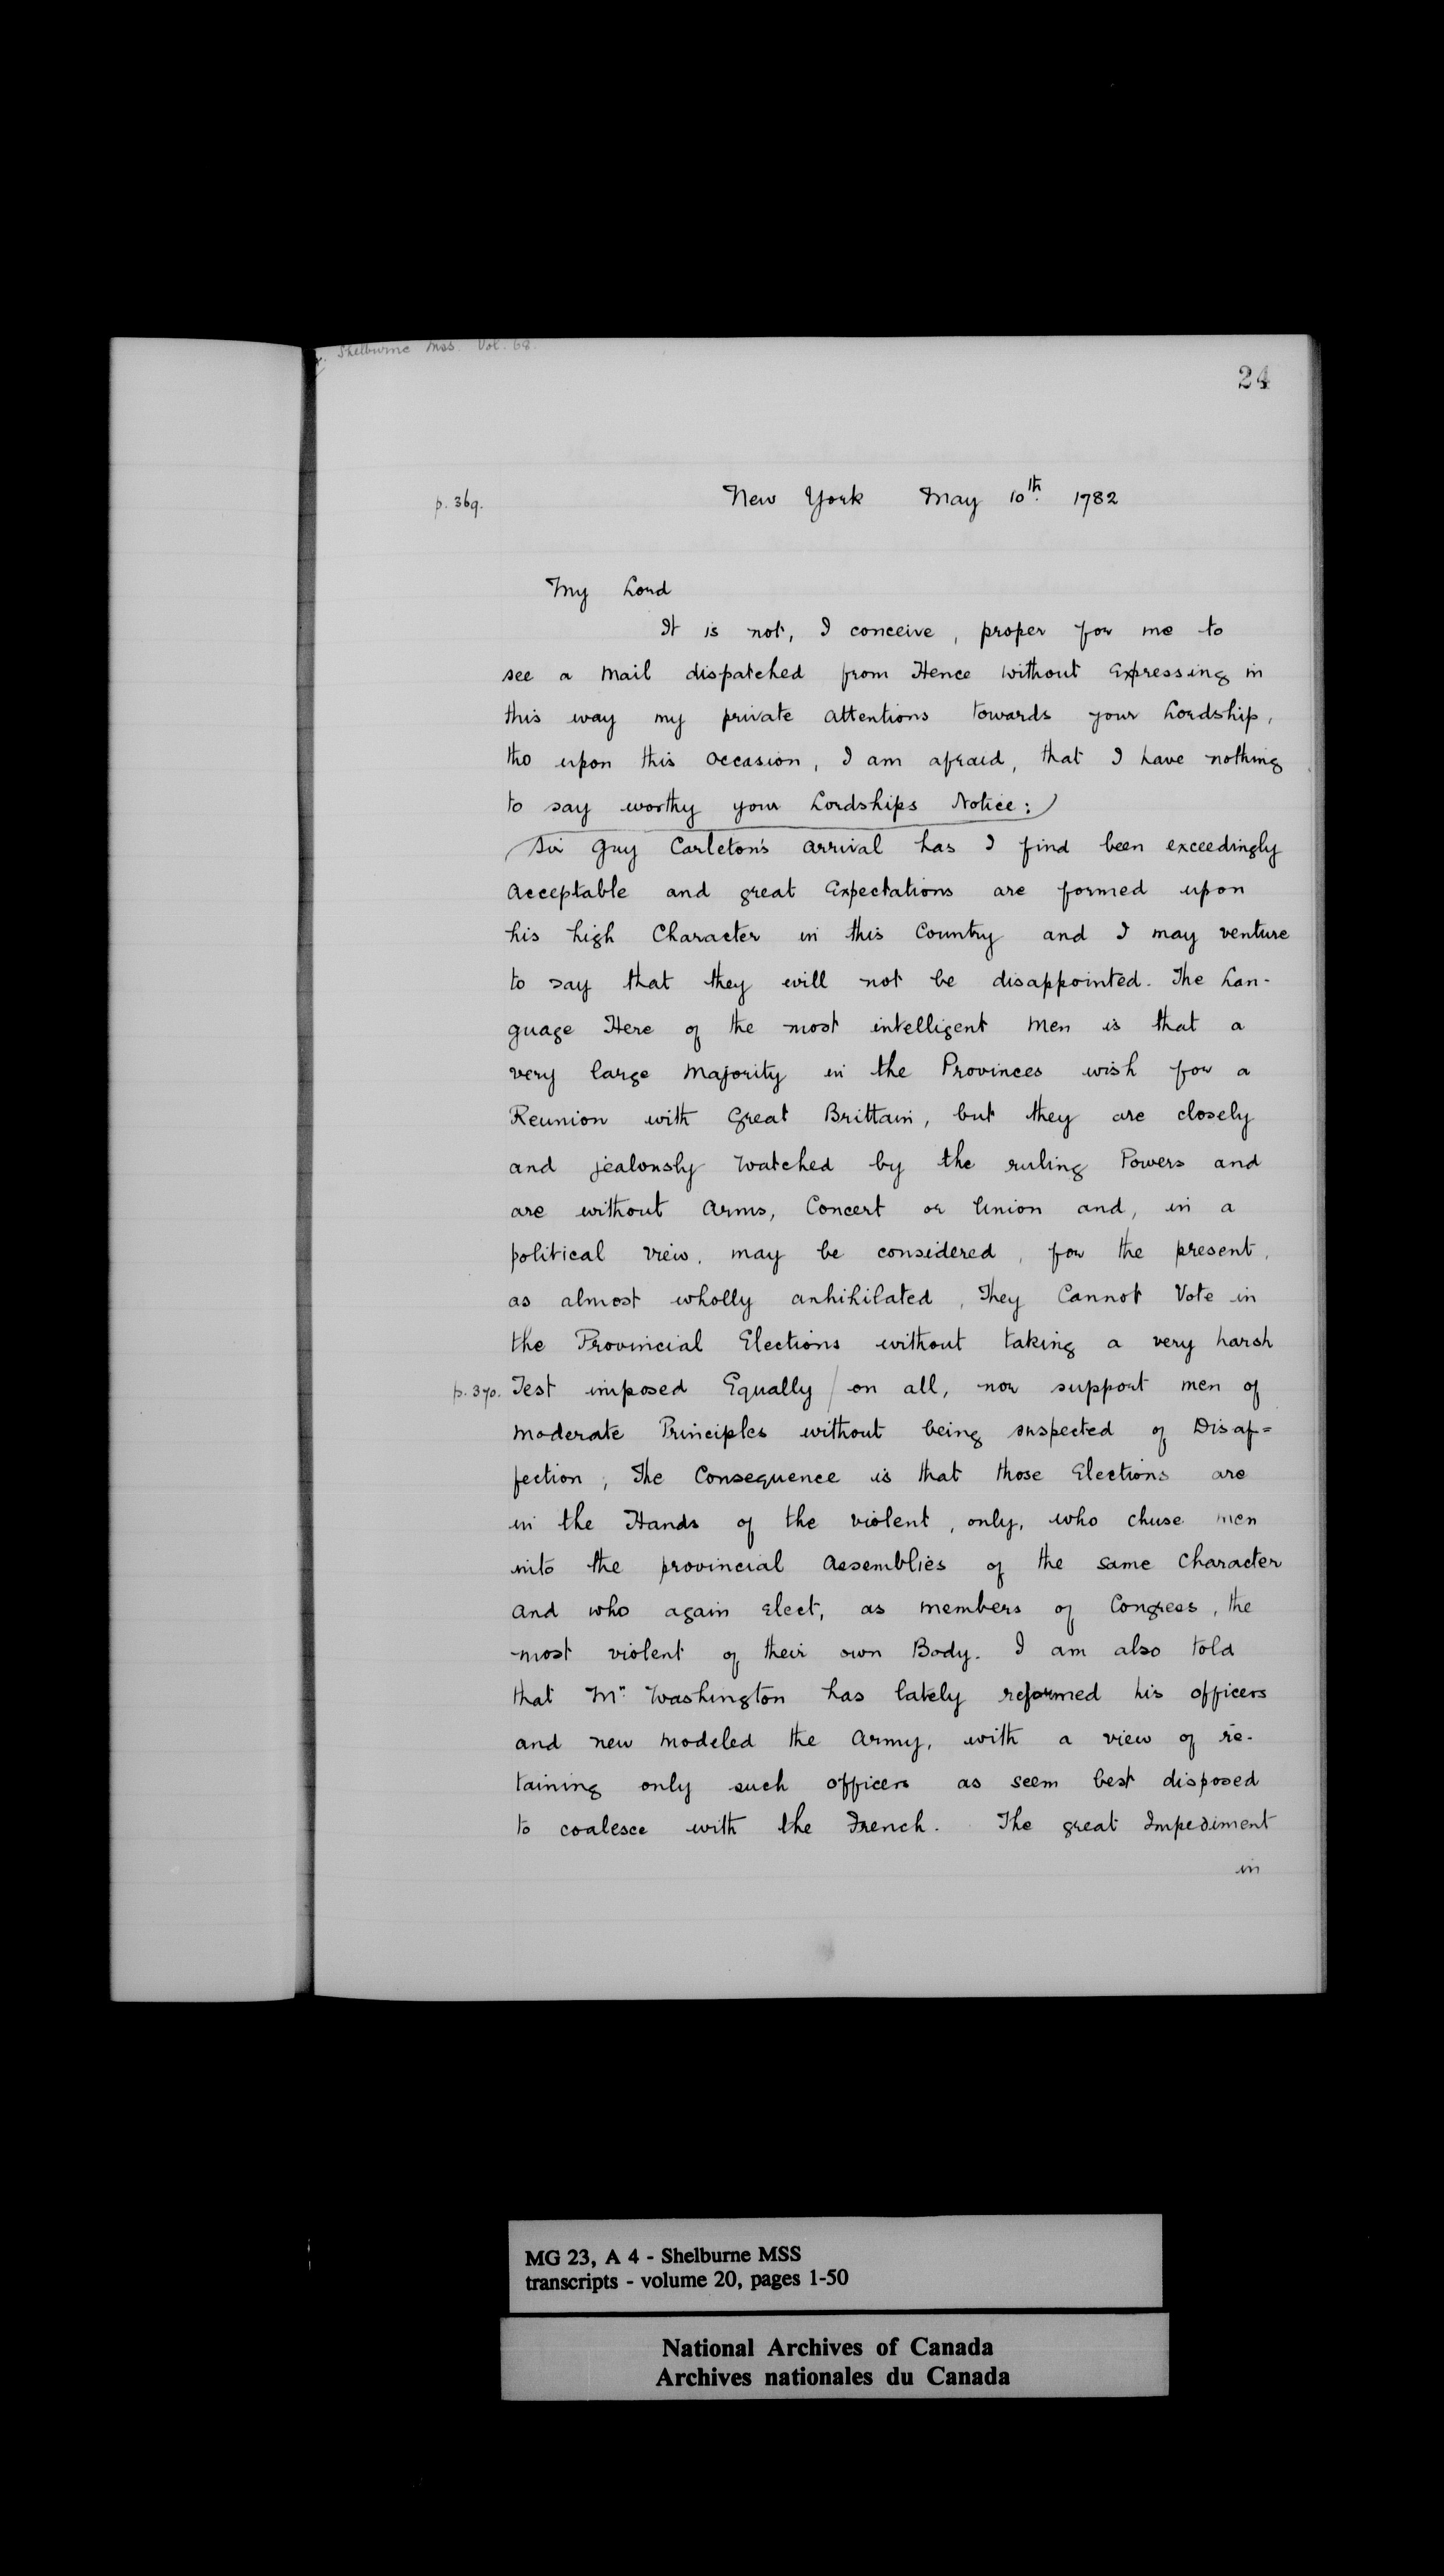 Shelburne Mss. Vol. 68.
24
p. 369.
New York May 10th. 1782
My Lord
It is not, I conceive, proper for me to
see a Mail dispatched from Hence without Expressing in
this way my private Attentions towards your Lordship,
tho upon this Occasion, I am afraid, that I have nothing
to say worthy your Lordships Notice:
Sir Guy Carleton's arrival has I find been exceedingly
Acceptable and great Expectations are formed upon
his high Character in this Country and I may venture
to say that they will not be disappointed. The Lan-
guage Here of the most intelligent Men is that a
very large Majority in the Provinces wish for a
Reunion with Great Brittain, but they are closely
and jealously Watched by the ruling Powers and
are without Arms, Concert or Union and, in a
political view, may be considered, for the present,
as almost wholly anhihilated, They Cannot Vote in
the Provincial Elections without taking a very harsh
p. 370. Test imposed Equally / on all, nor support men of
Moderate Principles without being suspected of Disaf=
fection; The Consequence is that those Elections are
in the Hands of the violent, only, who chuse men
into the provincial Assemblies of the same Character
and who again Elect, as Members of Congress, the
most violent of their own Body. I am also told
that Mr. Washington has lately reformed his officers
and new modeled the Army, with a view of re-
taining only such officers as seem best disposed
to coalesce with the French. The great Impediment
in
MG 23, A 4 - Shelburne MSS
transcripts - volume 20, pages 1-50
National Archives of Canada
Archives nationales du Canada